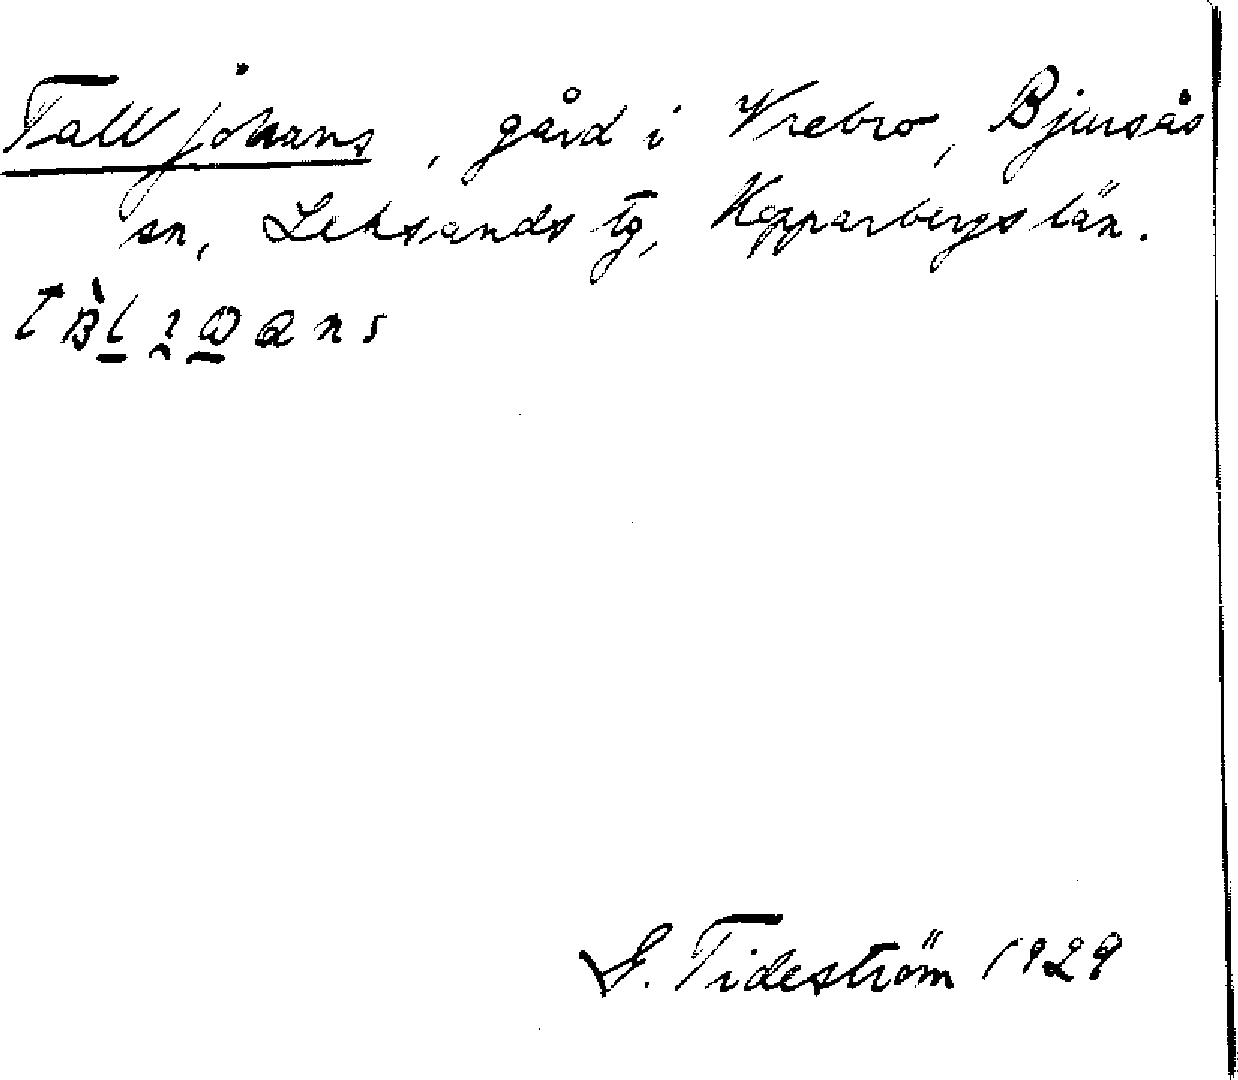 Talljohans, gård i Vrebro, Bjursås
sn, Leksands tg, Kopparbergs län.
G. Tideström 1929